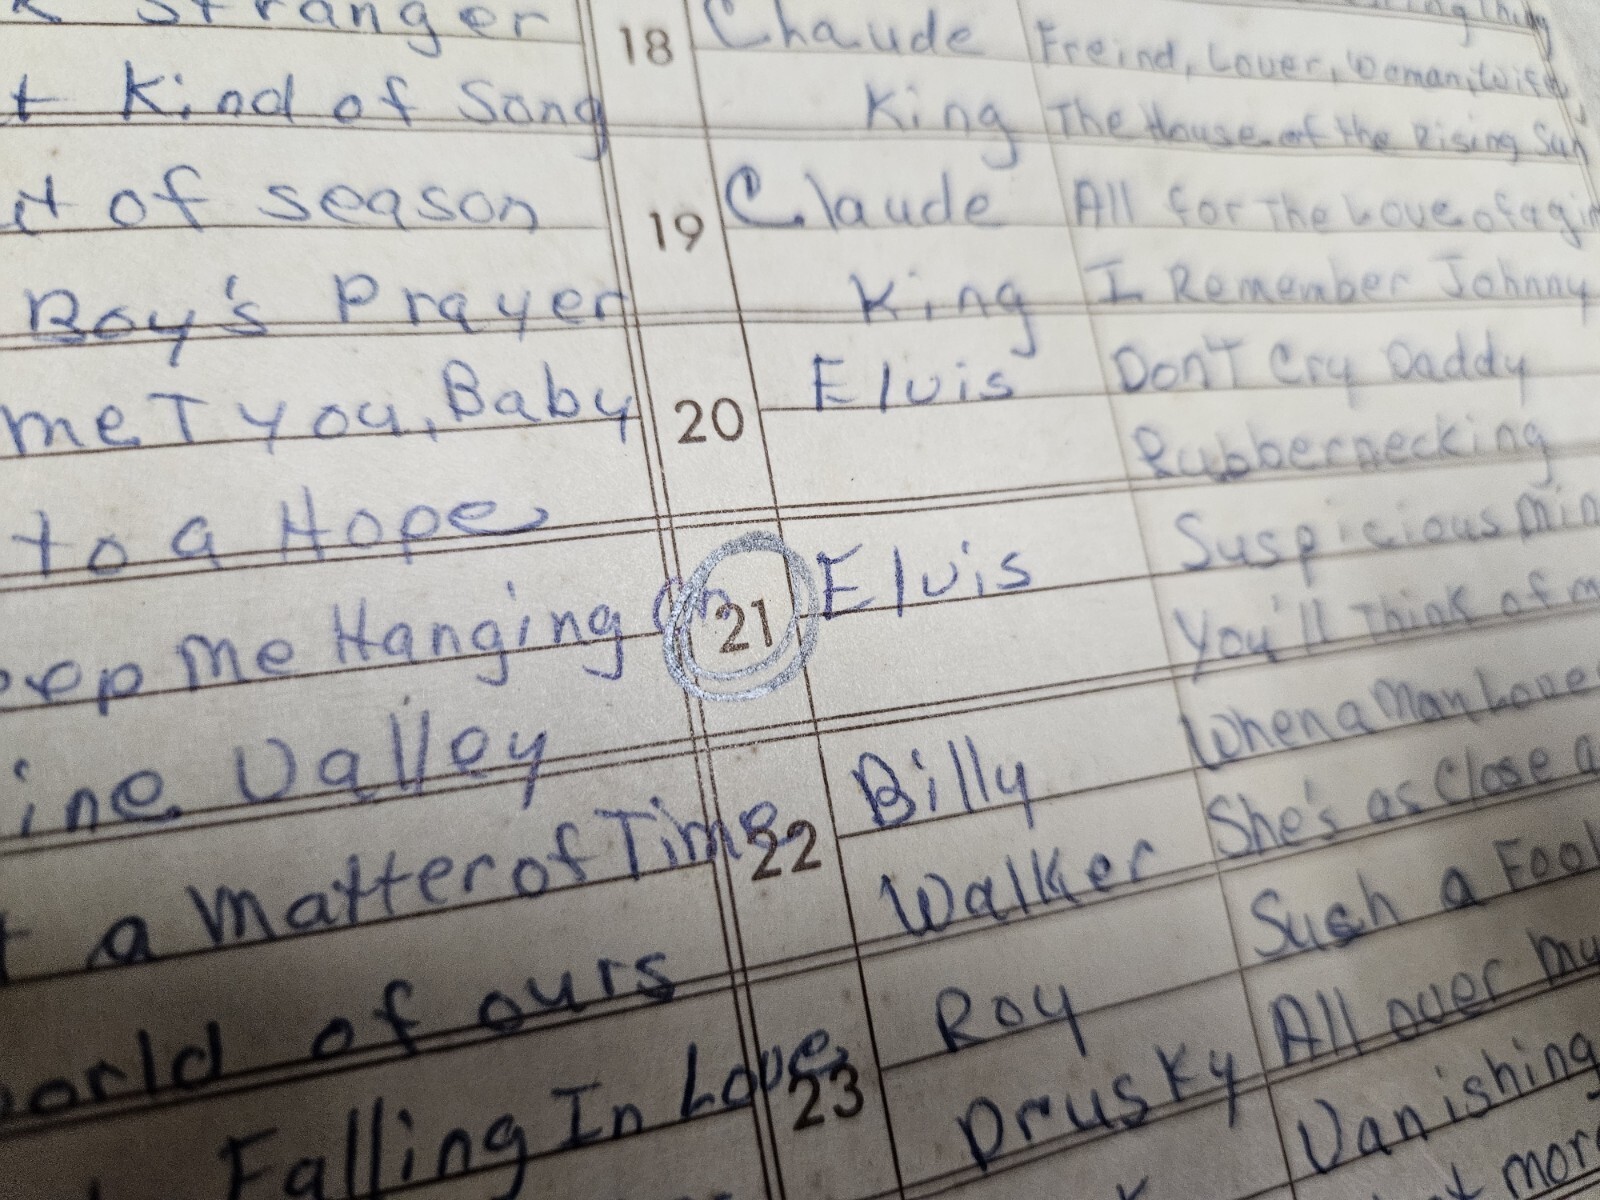 Stranger
Kind of Song
of season
Boy's Prayer
me T you, Baby
to a Hope
me Hanging On
Valley
a matter of Time
of ours
Falling In Love
18 Chaude Freind, Lover, Woman, Wife
King The House of the Rising Sun
19 Claude All for The Love of a
King I Remember Johnny
20 Elvis Don'T Cry Daddy
Rubbernecking
21 Elvis Suspicious
You'll Think of
22 Billy When a Man
Walker She's as Close
Such a
23 Roy All over
Drusky Vanishing